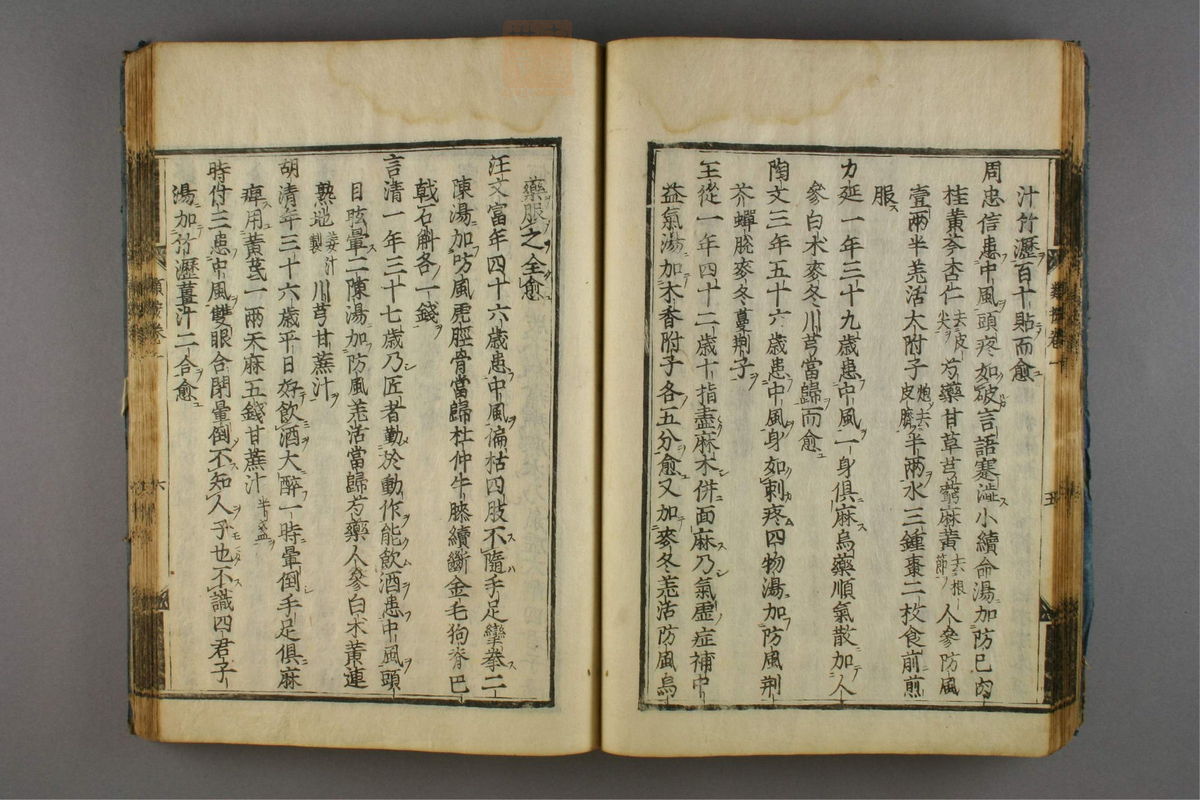 汁竹瀝百十貼而愈
周忠信患中風頭疼如破言語蹇澁小續命湯加防已肉
桂黄芩杏仁去皮尖芍藥甘草芎藭麻黄去根節人參防風
壹兩半羌活大附子炮去皮臍半兩水三鍾棗二枚食前煎
服
力延一年三十九歳患中風一身俱麻烏藥順氣散加人
參白朮麥冬川芎當歸而愈
陶文三年五十六歳患中風身如刺疼四物湯加防風荆
芥蟬脱麥冬蔓荆子
王從一年四十二歳十指盡麻木併面麻乃氣虛症補中
益氣湯加木香附子各五分愈又加麥冬羌活防風烏
五
藥服之全愈
汪文富年四十六歳患中風偏枯四肢不隨手足攣拳二
陳湯加防風虎脛骨當歸杜仲牛膝續斷金毛狗脊巴
戟石斛各一錢
言清一年三十七歳乃匠者勤於動作能飲酒患中風頭
目眩暈二陳湯加防風羌活當歸芍藥人參白朮黄連
熟地姜汁製川芎甘蔗汁
胡清年三十六歳平日好飲酒大醉一時暈倒手足俱麻
痺用黄芪一兩天麻五錢甘蔗汁半盞
時付三患中風雙眼合閉暈倒不知人子也不識四君子
湯加竹瀝薑汁二合愈
六